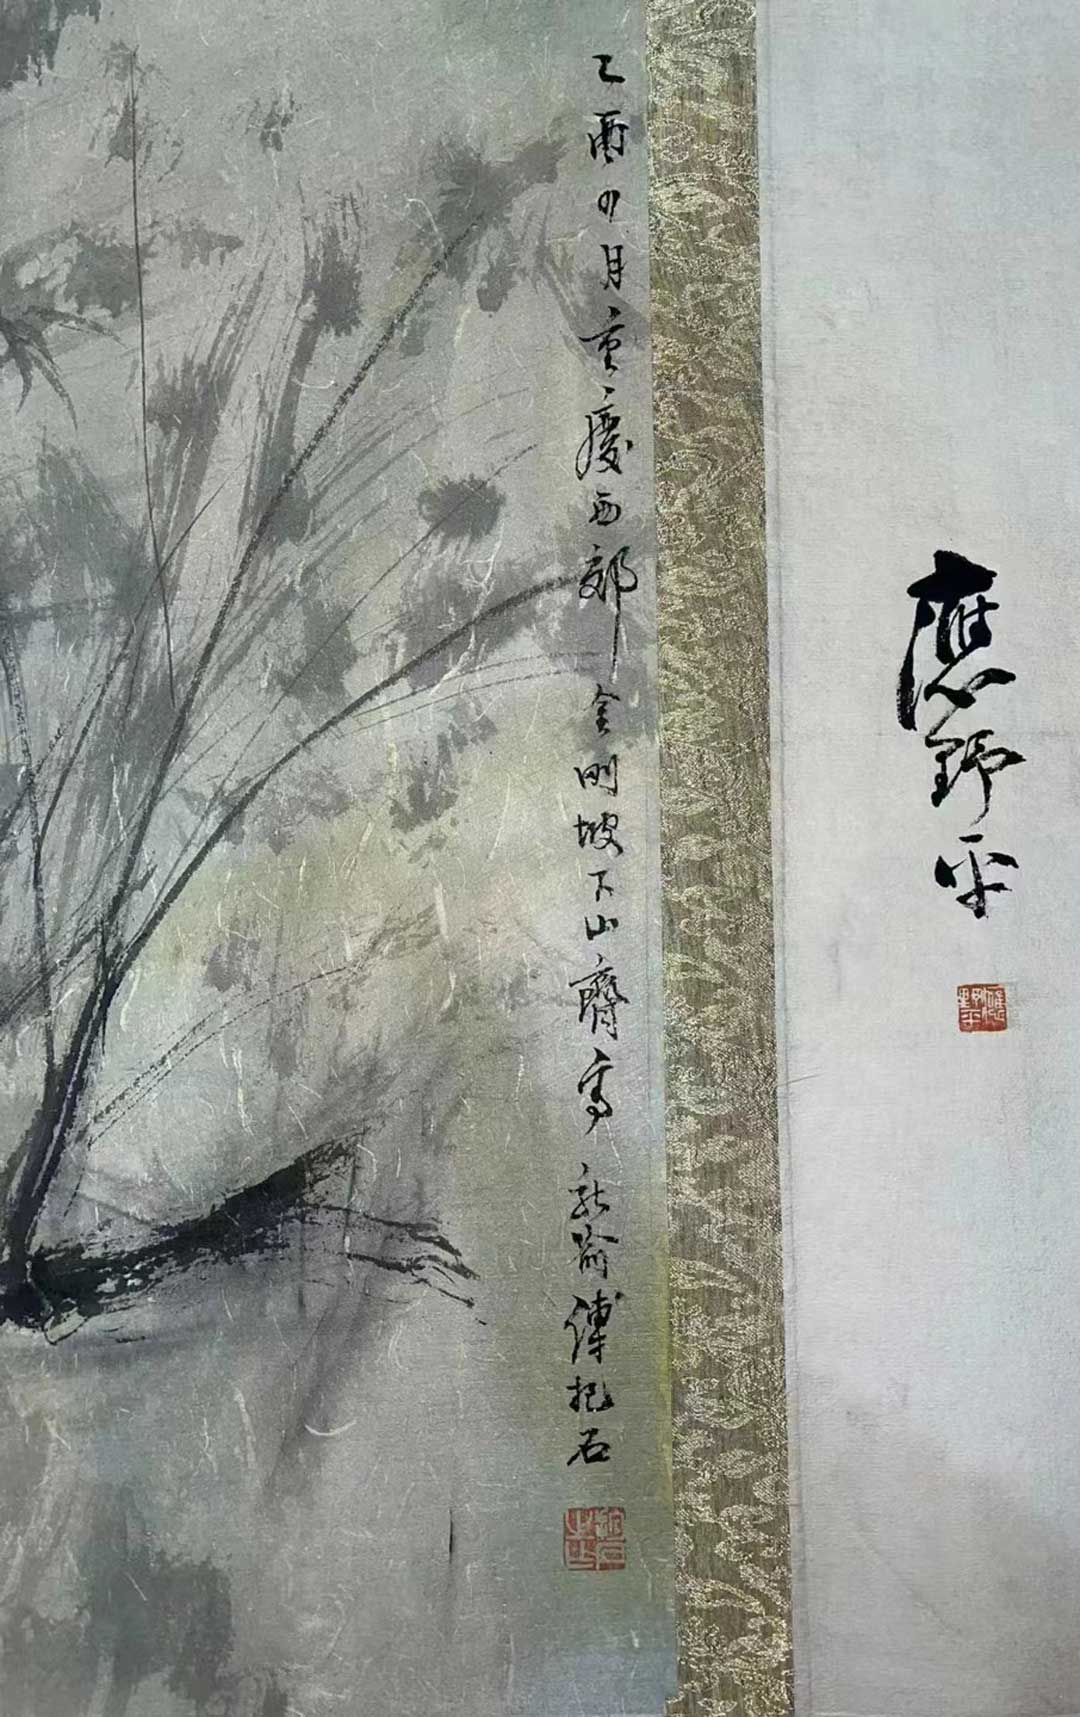 應野平
應野平
乙酉四月重慶西郊金剛坡下山齋寫 新喻傅抱石
抱石之印